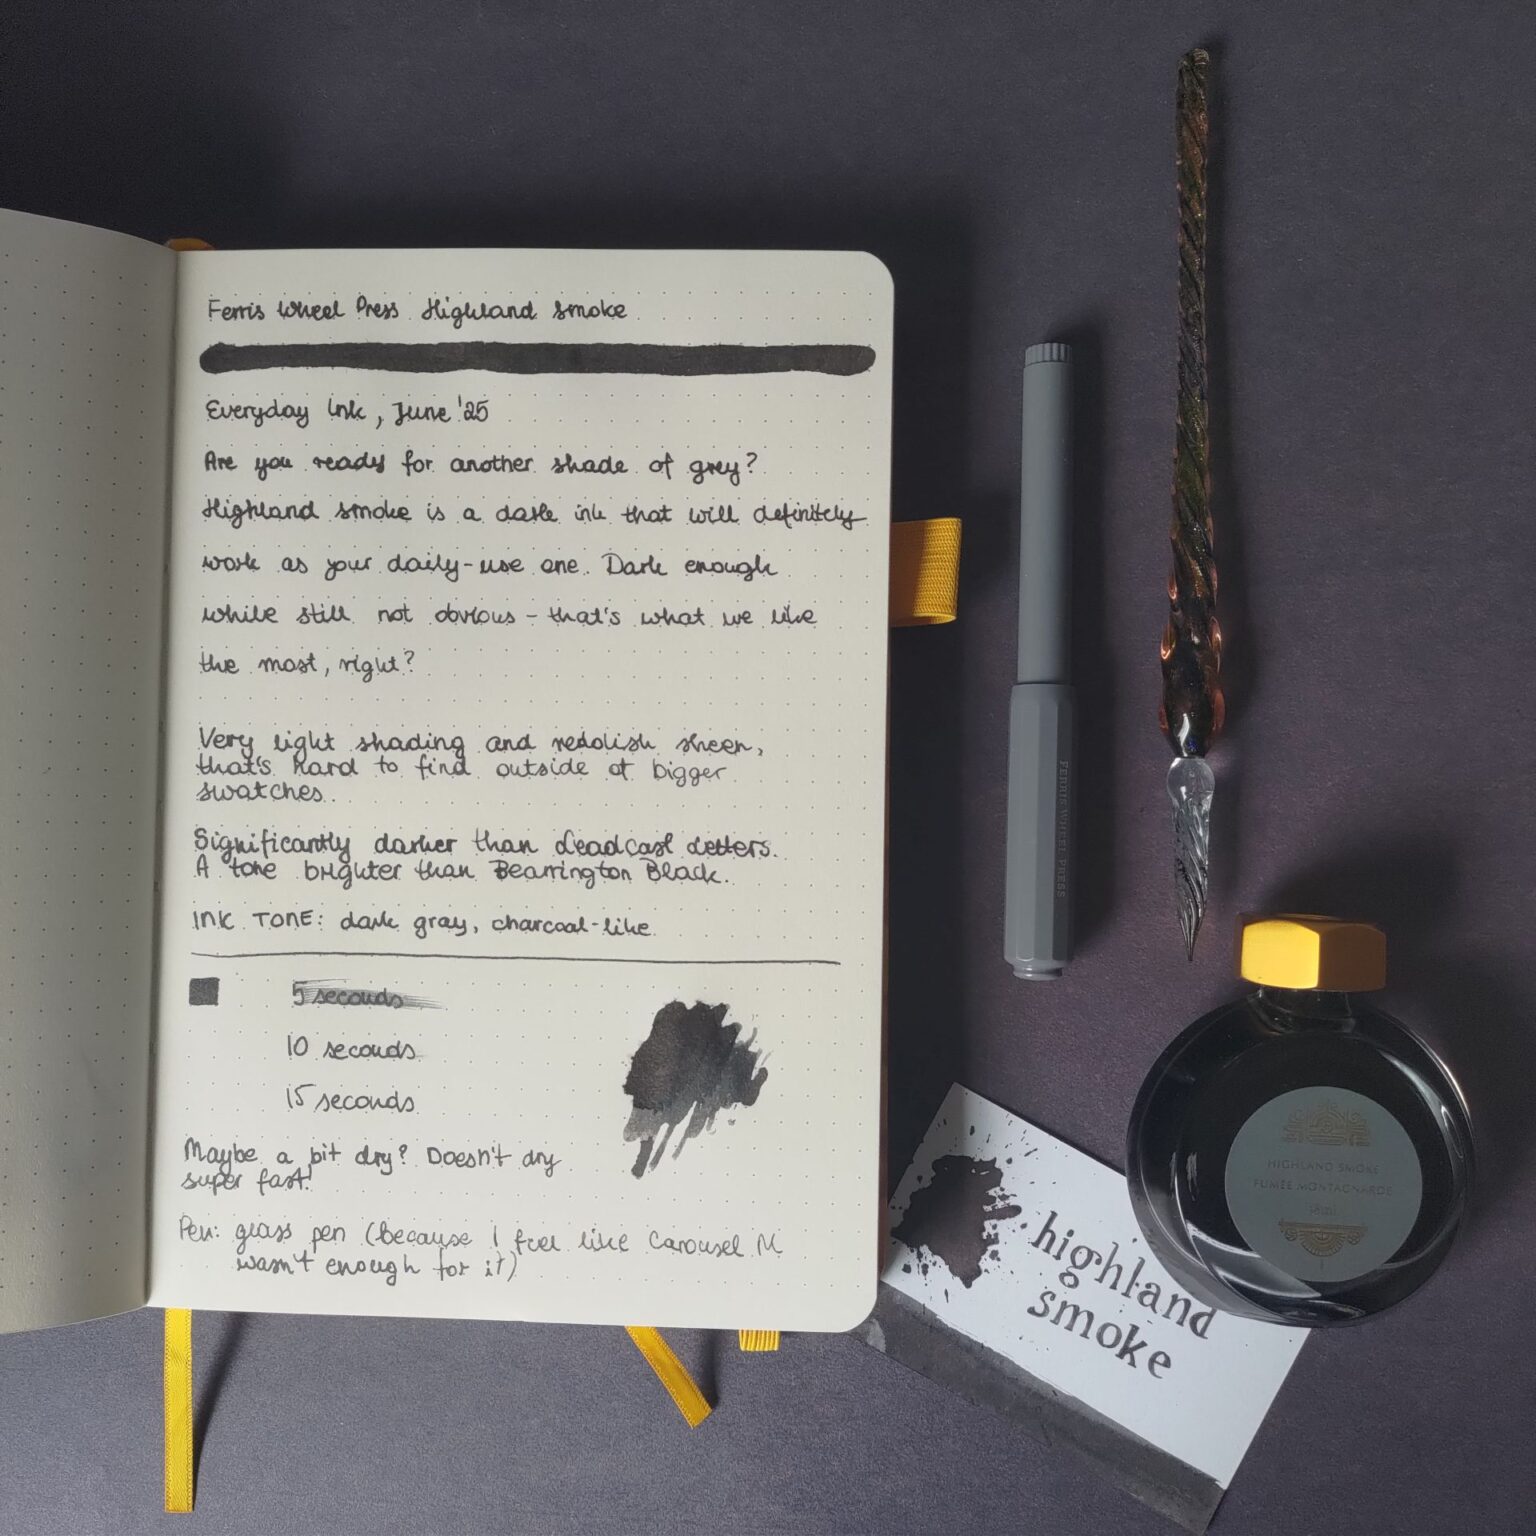 Ferris Wheel Press Highland Smoke
Everyday ink, June '25
Are you ready for another shade of grey?
Highland smoke is a dark ink that will definitely
work as your daily-use one. Dark enough
while still not obvious - that's what we like
the most, right?
Very light shading and reddish sheen,
that's hard to find outside of bigger
swatches.
Significantly darker than Leadcast Letters.
A tone brighter than Bearrington Black.
INK TONE: dark gray, charcoal-like
5 seconds
10 seconds
15 seconds
Maybe a bit dry? Doesn't dry
super fast!
Pen: glass pen (because I feel like Carousel M
wasn't enough for it)
FERRIS WHEEL PRESS
HIGHLAND SMOKE
FUMÉE MONTAGNARDE
38ml
highland
smoke